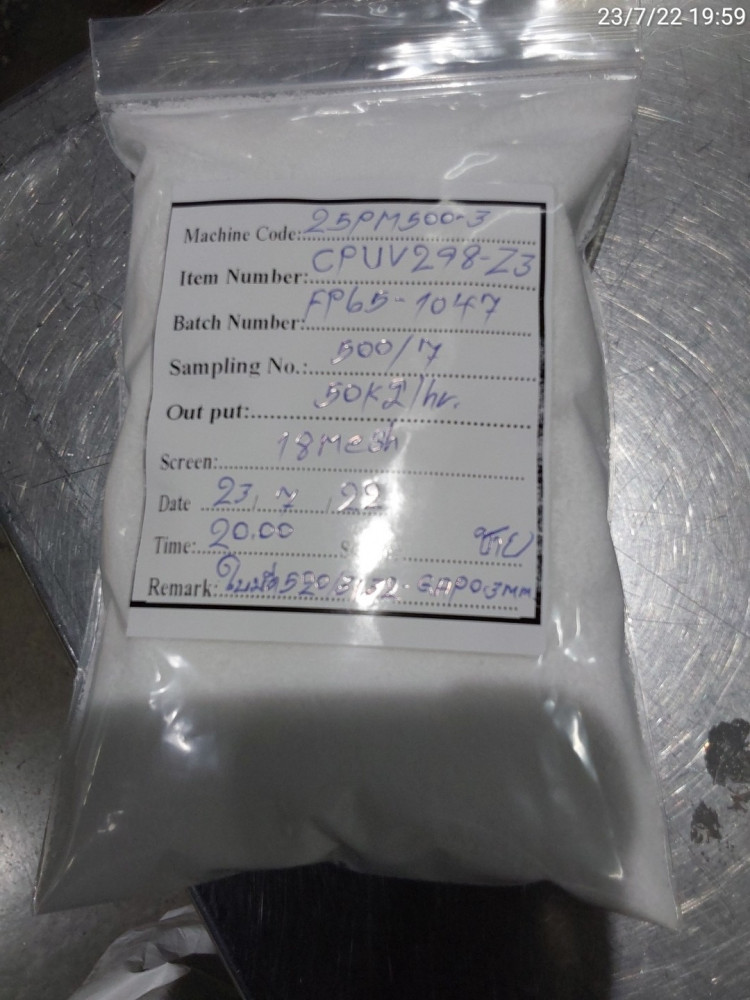 23/7/22 19:59
Machine Code: 25PM500-3
Item Number: CPUV298-Z3
Batch Number: FP65-1047
Sampling No.: 500/7
Out put: 50Kg/hr.
Screen: 18Mesh
Date 23/7/22
Time: 20.00
Remark: ใบมีด GAP0.3mm